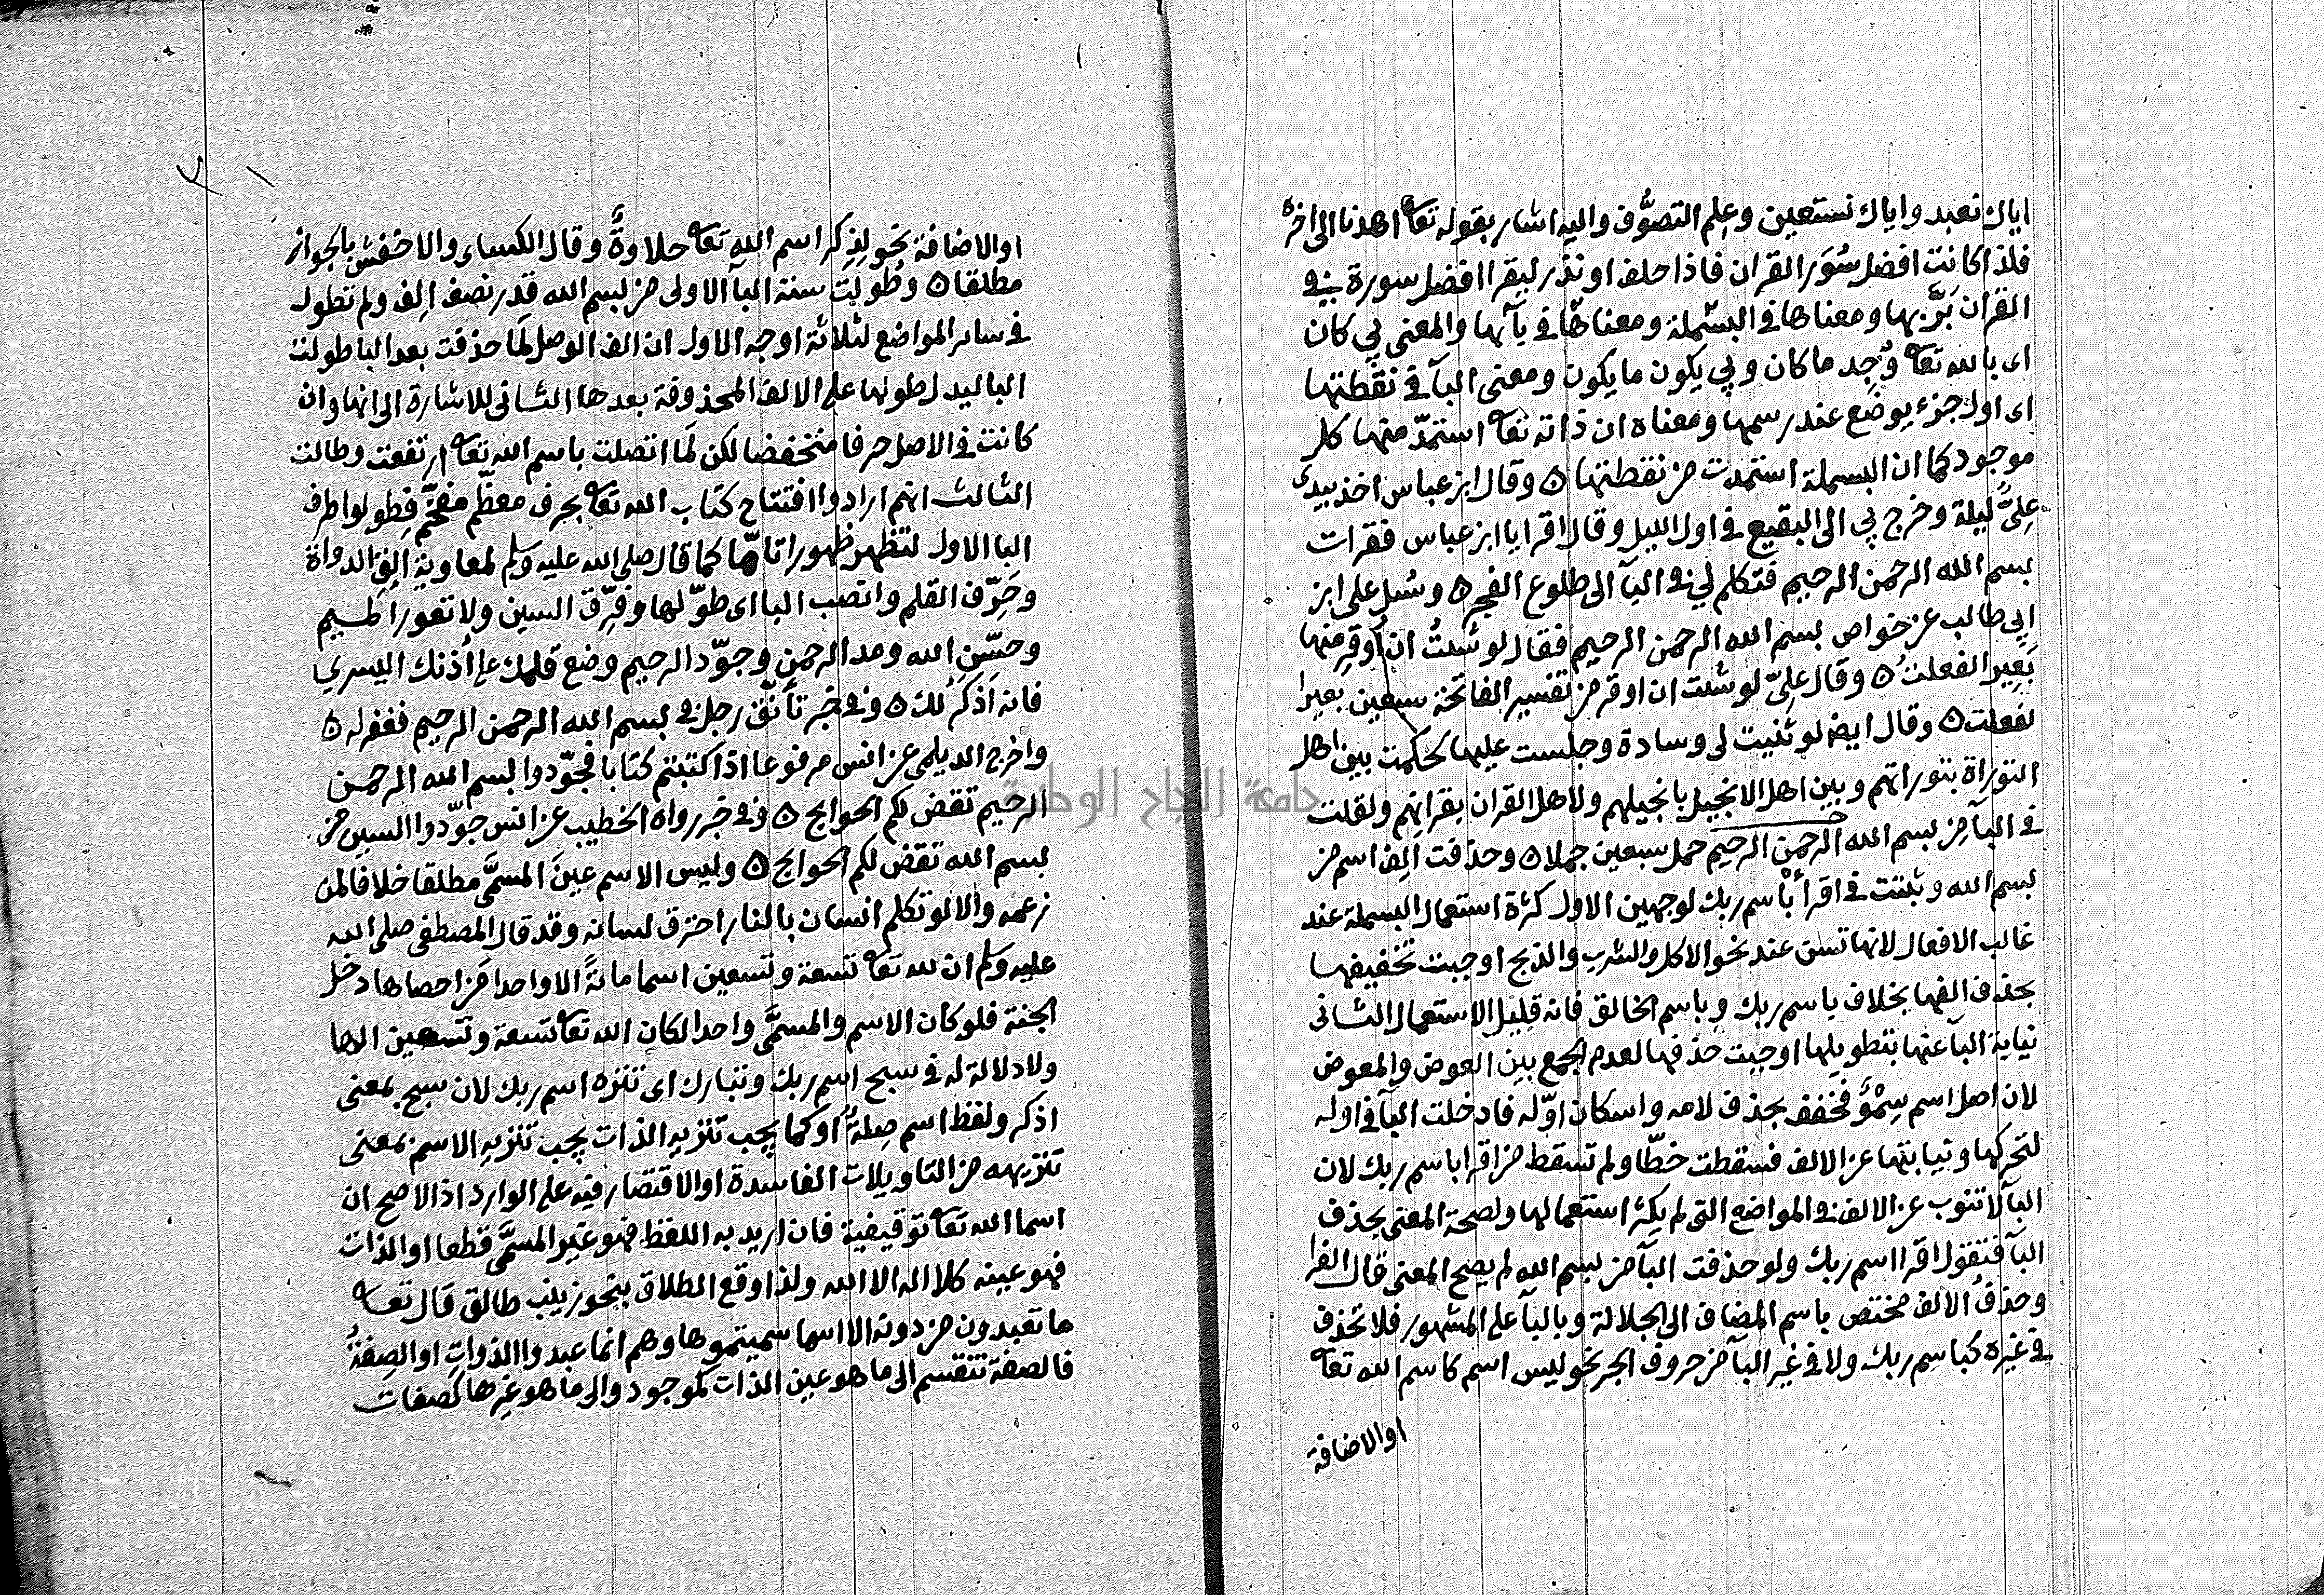 اياك نعبد واياك نستعين وعلم التصوُّف واليه اشار بقوله تعا اهدنا الى اخره
فلذا كانت افضل سُوَر القران فاذا حلف او نذر ليقرا افضل سورة في
القران بَرَّ بها ومعناها في البسملة ومعناها في بآئها والمعنى بي كان
اى بالله تعا وُجِد ما كان وبي يكون ما يكون ومعنى البآ في نقطتها
اى اول جزء يوضع عند رسمها ومعناه ان ذاته تعا استمدّ منها كل
موجود كما ان البسملة استمدت من نقطتها ه وقال ابن عباس اخذ بيدى
علىٌّ ليلة وخرج بي الى البقيع في اول الليل وقال اقرا يا ابن عباس فقرات
بسم الله الرحمن الرحيم فتكلم لي في البآ الى طلوع الفجر ه وسُئل على ابن
ابى طالب عن خواص بسم الله الرحمن الرحيم فقال لو شئتُ ان اُوقِر منها
بَعِيرا لفعلتُ ه وقال علىّ لو شئت ان اوقر من تفسير الفاتحة سبعين بعيرا
لفعلت ه وقال ايضا لو ثنيت لى وسادة وجلست عليها لحكمت بين اهل
التوراة بتوراتهم وبين اهل الانجيل بانجيلهم ولاهل القران بقرانهم ولقلت
في البآ من بسم الله الرحمن الرحيم حمل سبعين جملا ه وحذفت الف اسم من
بسم الله وثبتت في اقرأ بأسم ربك لوجهين الاول كثرة استعمال البسملة عند
غالب الافعال لانها تسن عند نحو الاكل والشرب والذبح اوجبت تخفيفها
بحذف الفها بخلاف باسم ربك وباسم الخالق فانه قليل الاستعمال الثانى
نيابة البآ عنها بتطويلها اوجبت حذفها لعدم الجمع بين العوض والمعوض
لان اصل اسم سِمْوٌ فخفف بحذف لامه واسكان اوّله فادخلت البآ في اوله
لتحركها ونيابتها عن الالف فسقطت خطّا ولم تسقط من اقرا باسم ربك لان
البآ لا تنوب عن الالف في المواضع التى لم يكثر استعمالها ولصحة المعنى بحذف
البآ فتقول اقرا اسم ربك ولو حذفت البآ من بسم الله لم يصح المعنى قال الفرا
وحذف الالف مختص باسم المضاف الى الجلالة وبالبآ على المشهور فلا تحذف
في غيره كباسم ربك ولا في غير البآ من حروف الجر نحو ليس اسم كاسم الله تعا
او الاضافة
او الاضافة نحو لِذِكر اسم الله تعا حلاوةٌ وقال الكساى والاخفش بالجواز
مطلقا ه وطُوِّلت سنة البآ الاولى من بسم الله قدر نصف الف ولم تطول
في سائر المواضع لثلاثة اوجه الاول ان الف الوصل لَمّا حذفت بعد البا طولت
البا ليدل طولها على الالف المحذوفة بعدها الثانى للاشارة الى انها وان
كانت في الاصل حرفا منخفضا لكن لَمّا اتصلت باسم الله تعا ارتفعت وطالت
الثالث انهم ارادوا افتتاح كتاب الله تعا بحرف معظّم مفخّم فطولوا طرف
البا الاول لتظهر ظهورا تامّا كما قال صلى الله عليه وسلم لمعاوية الق الدواة
وحَرِّف القلم وانصب البا اى طوّلها وفرِّق السين ولا تعور الميم
وحسِّن الله ومد الرحمن وجوّد الرحيم وضع قلمك على اُذنك اليسرى
فانه اَذكَر لك ه وفي خبر تأنّق رجل في بسم الله الرحمن الرحيم فغفر له ه
واخرج الديلمى عن انس مرفوعا اذا كتبتم كتابا فجوّدوا بسم الله الرحمن
الرحيم تقض لكم الحوايج ه وفي خبر رواه الخطيب عن انس جوّدوا السين من
بسم الله تقض لكم الحوايج ه وليس الاسم عينَ المسمَّى مطلقا خلافا لمن
زعمه والا لو تكلم انسان بالنار احترق لسانه وقد قال المصطفى صلى الله
عليه وسلم ان لله تعا تسعة وتسعين اسما مائةً الا واحدا مَن احصاها دخل
الجنة فلو كان الاسم والمسمَّى واحدا لكان الله تعا تسعة وتسعين الاها
ولا دلالة له في سبح اسم ربك وتبارك اى تنزه اسم ربك لان سبح بمعنى
اذكر ولفظ اسم صلةٌ او كما يجب تنزيه الذات يجب تنزيه الاسم بمعنى
تنزيهه من التاويلات الفاسدة او الاقتصار فيه على الوارد اذ الاصح ان
اسما الله تعا توقيفية فان اريد به اللفظ فهو غير المسمَّى قطعا او الذات
فهو عينه كلا اله الا الله ولذا وقع الطلاق بنحو زينب طالق قال تعا
ما تعبدون من دونه الا اسما سميتموها وهم انما عبدوا الذوات او الصفةُ
فالصفة تنقسم الى ما هو عين الذات كموجود والى ما هو غيرها كصفات